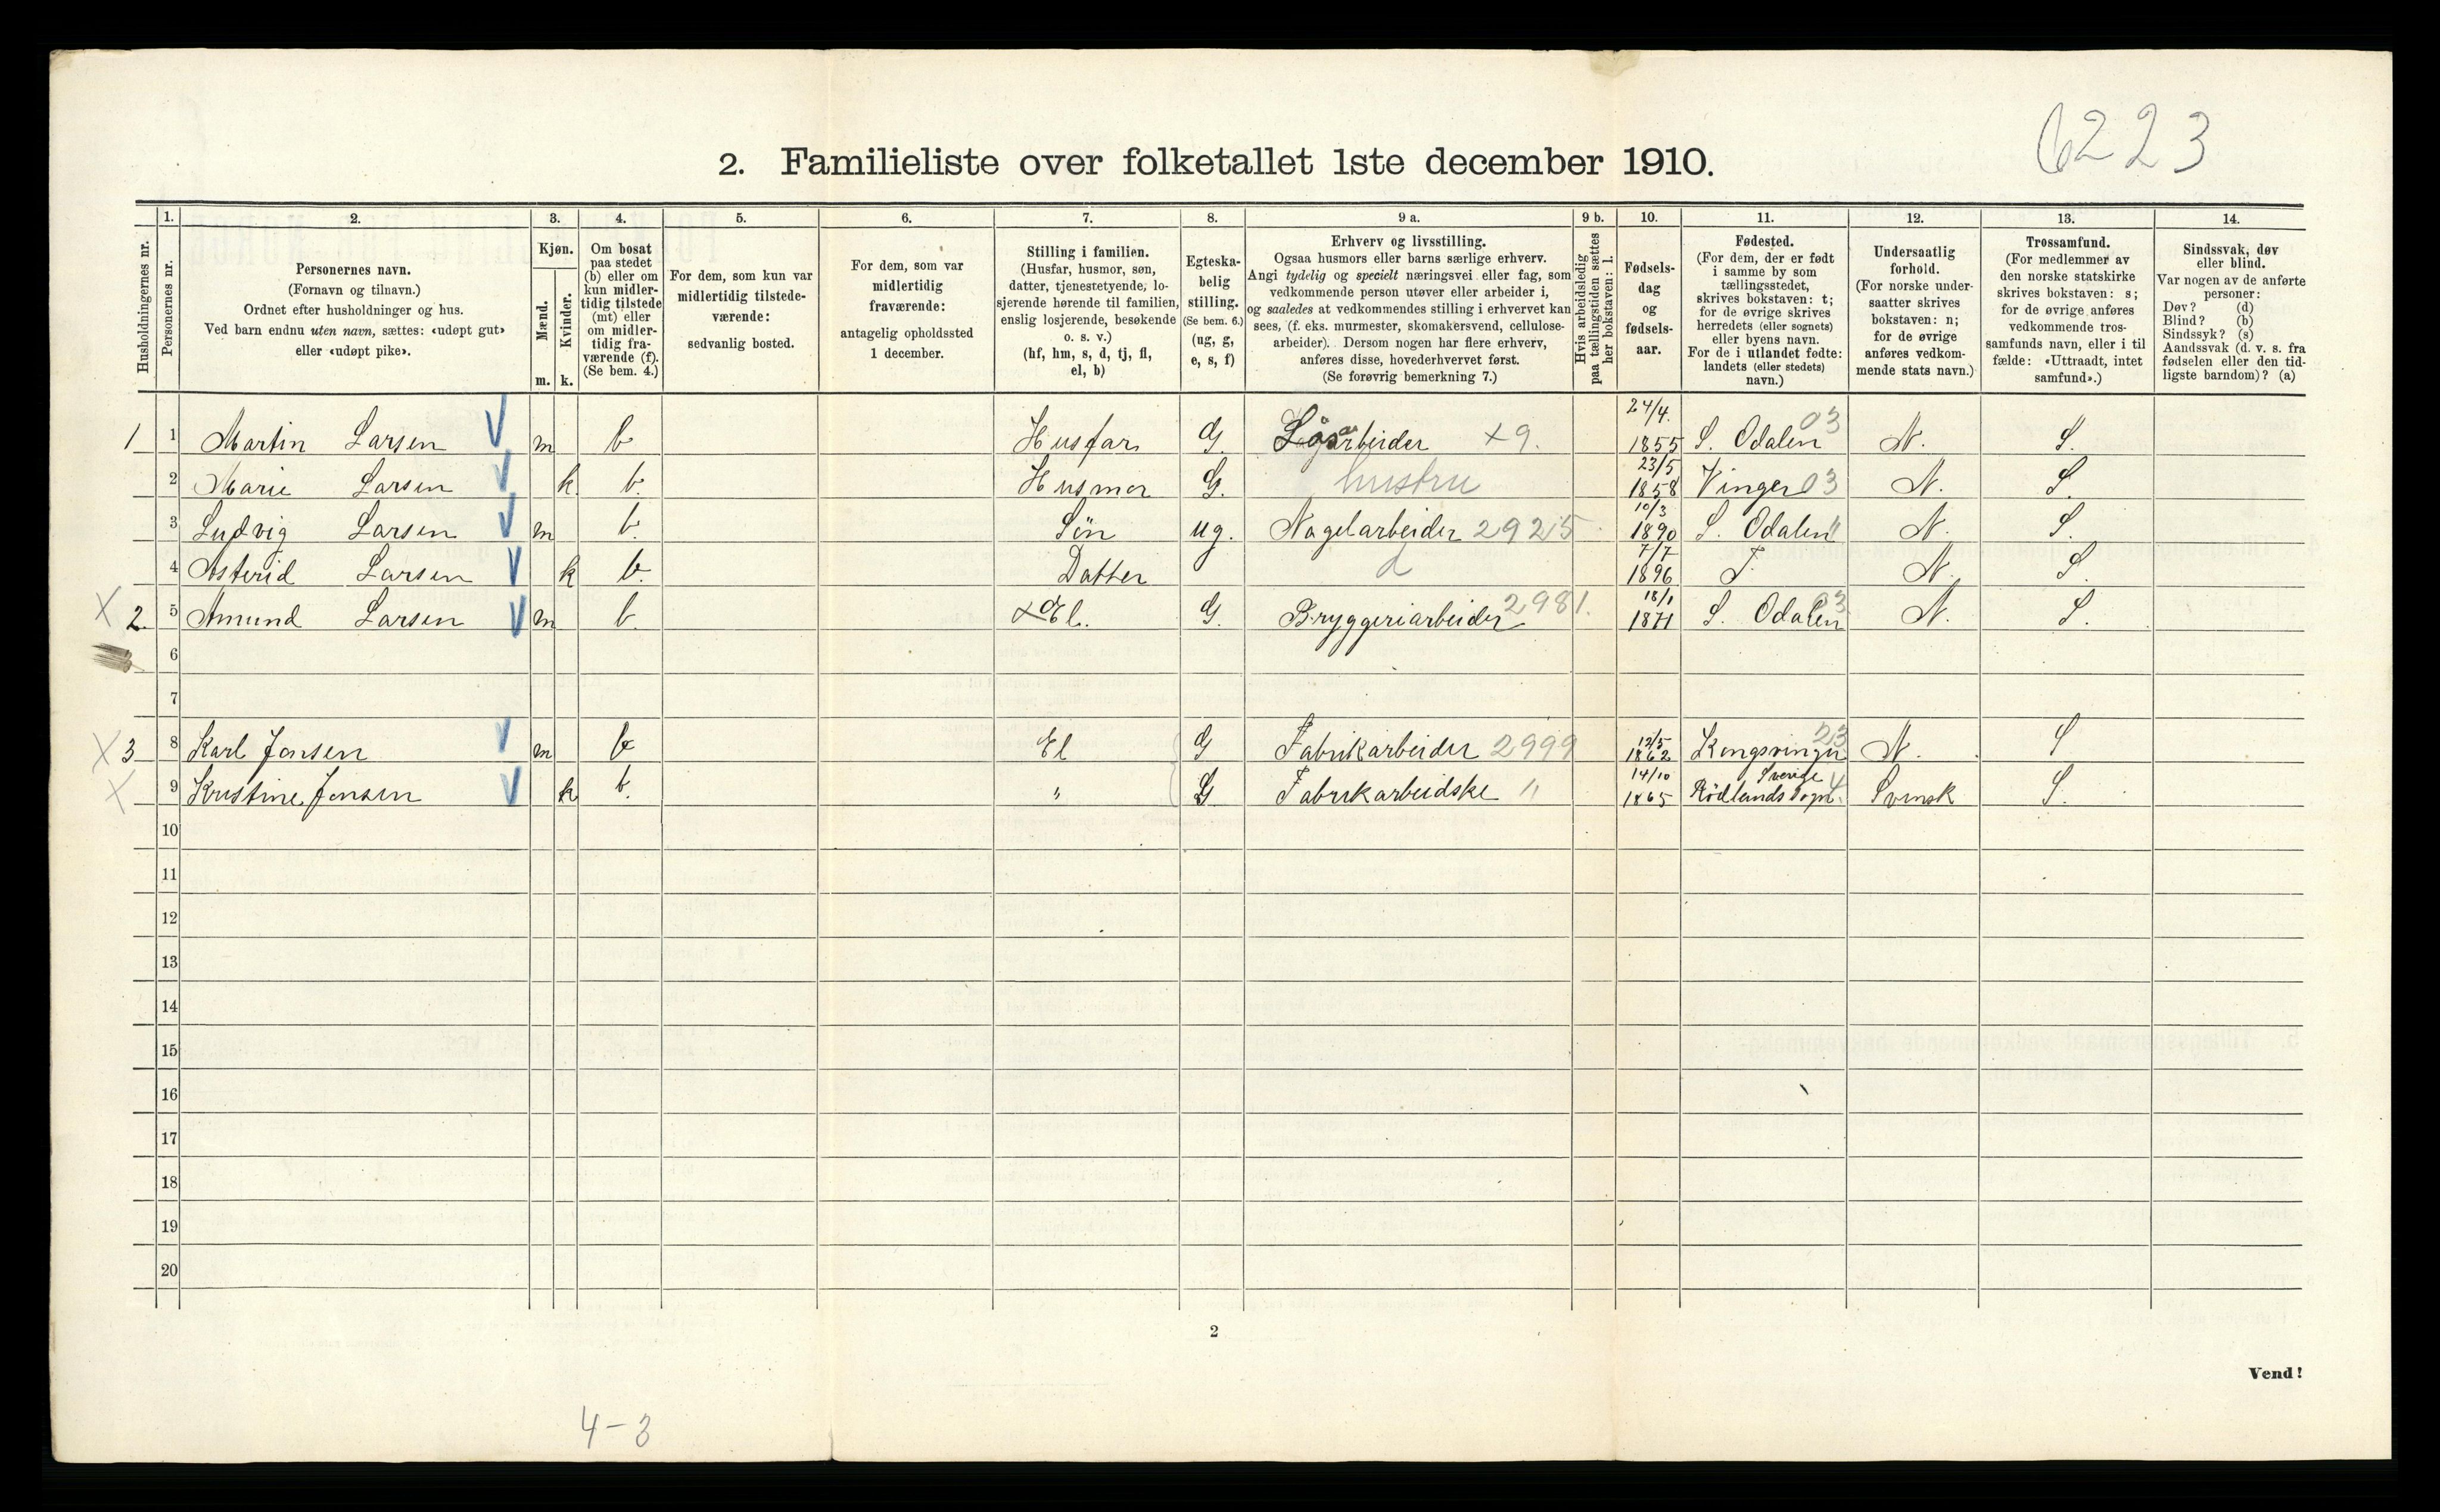 6223
2. Familieliste over folketallet 1ste december 1910.
1. 2. 3. 4. 5. 6. 7. 8. 9 a. 9 b. 10. 11. 12. 13. 14.
Husholdningernes nr.
Personernes nr.
Personernes navn.
(Fornavn og tilnavn.)
Ordnet efter husholdninger og hus.
Ved barn endnu uten navn, sættes: «udøpt gut»
eller «udøpt pike».
Kjøn.
Mænd.
Kvinder.
m. k.
Om bosat
paa stedet
(b) eller om
kun midler-
tidig tilstede
(mt) eller
om midler-
tidig fra-
værende (f).
(Se bem. 4.)
For dem, som kun var
midlertidig tilstede-
værende:
sedvanlig bosted.
For dem, som var
midlertidig
fraværende:
antagelig opholdssted
1 december.
Stilling i familien.
(Husfar, husmor, søn,
datter, tjenestetyende, lo-
sjerende hørende til familien,
enslig losjerende, besøkende
o. s. v.)
(hf, hm, s, d, tj, fl,
el, b)
Egteska-
belig
stilling.
(Se bem. 6.)
(ug, g,
e, s, f)
Erhverv og livsstilling.
Ogsaa husmors eller barns særlige erhverv.
Angi tydelig og specielt næringsvei eller fag, som
vedkommende person utøver eller arbeider i,
og saaledes at vedkommendes stilling i erhvervet kan
sees, (f. eks. murmester, skomakersvend, cellulose-
arbeider). Dersom nogen har flere erhverv,
anføres disse, hovederhvervet først.
(Se forøvrig bemerkning 7.)
Hvis arbeidsledig
paa tællingstiden sættes
her bokstaven: l.
Fødsels-
dag
og
fødsels-
aar.
Fødested.
(For dem, der er født
i samme by som
tællingsstedet,
skrives bokstaven: t;
for de øvrige skrives
herredets (eller sognets)
eller byens navn.
For de i utlandet fødte:
landets (eller stedets)
navn.)
Undersaatlig
forhold.
(For norske under-
saatter skrives
bokstaven: n;
for de øvrige
anføres vedkom-
mende stats navn.)
Trossamfund.
(For medlemmer av
den norske statskirke
skrives bokstaven: s;
for de øvrige anføres
vedkommende tros-
samfunds navn, eller i til
fælde: «Uttraadt, intet
samfund».)
Sindssvak, døv
eller blind.
Var nogen av de anførte
personer:
Døv? (d)
Blind? (b)
Sindssyk? (s)
Aandssvak (d. v. s. fra
fødselen eller den tid-
ligste barndom)? (a)
1 1 Martin Larsen m b Husfar G. x 9. 24/4. 1855 S. Odalen 03 N. S.
2 Marie Larsen k b. Husmor G. hustru 23/5 1858 Vinger 03 N. S.
3 Ludvig Larsen m b. Sön ug. Nagelarbeider 2925 10/3 1890 S. Odalen " N. S.
4 Asterid Larsen k b. Datter d 7/7 1896 T N. S.
X 2. 5 Amund Larsen m b. x El. G. Bryggeriarbeider 2981. 18/1 1871 S. Odalen 03 N. S.
6
7
X 3 8 Karl Jensen m b El G Fabrikarbeider 2999 12/5 1862 Kongsvinger 23 N. S
X 9 Kristine Jensen k b. " G Fabrikarbeidske " 14/10 1865 Sverige Rödlands Sogn. Svensk S.
10
11
12
13
14
15
16
17
18
19
20
2
Vend!
4-3